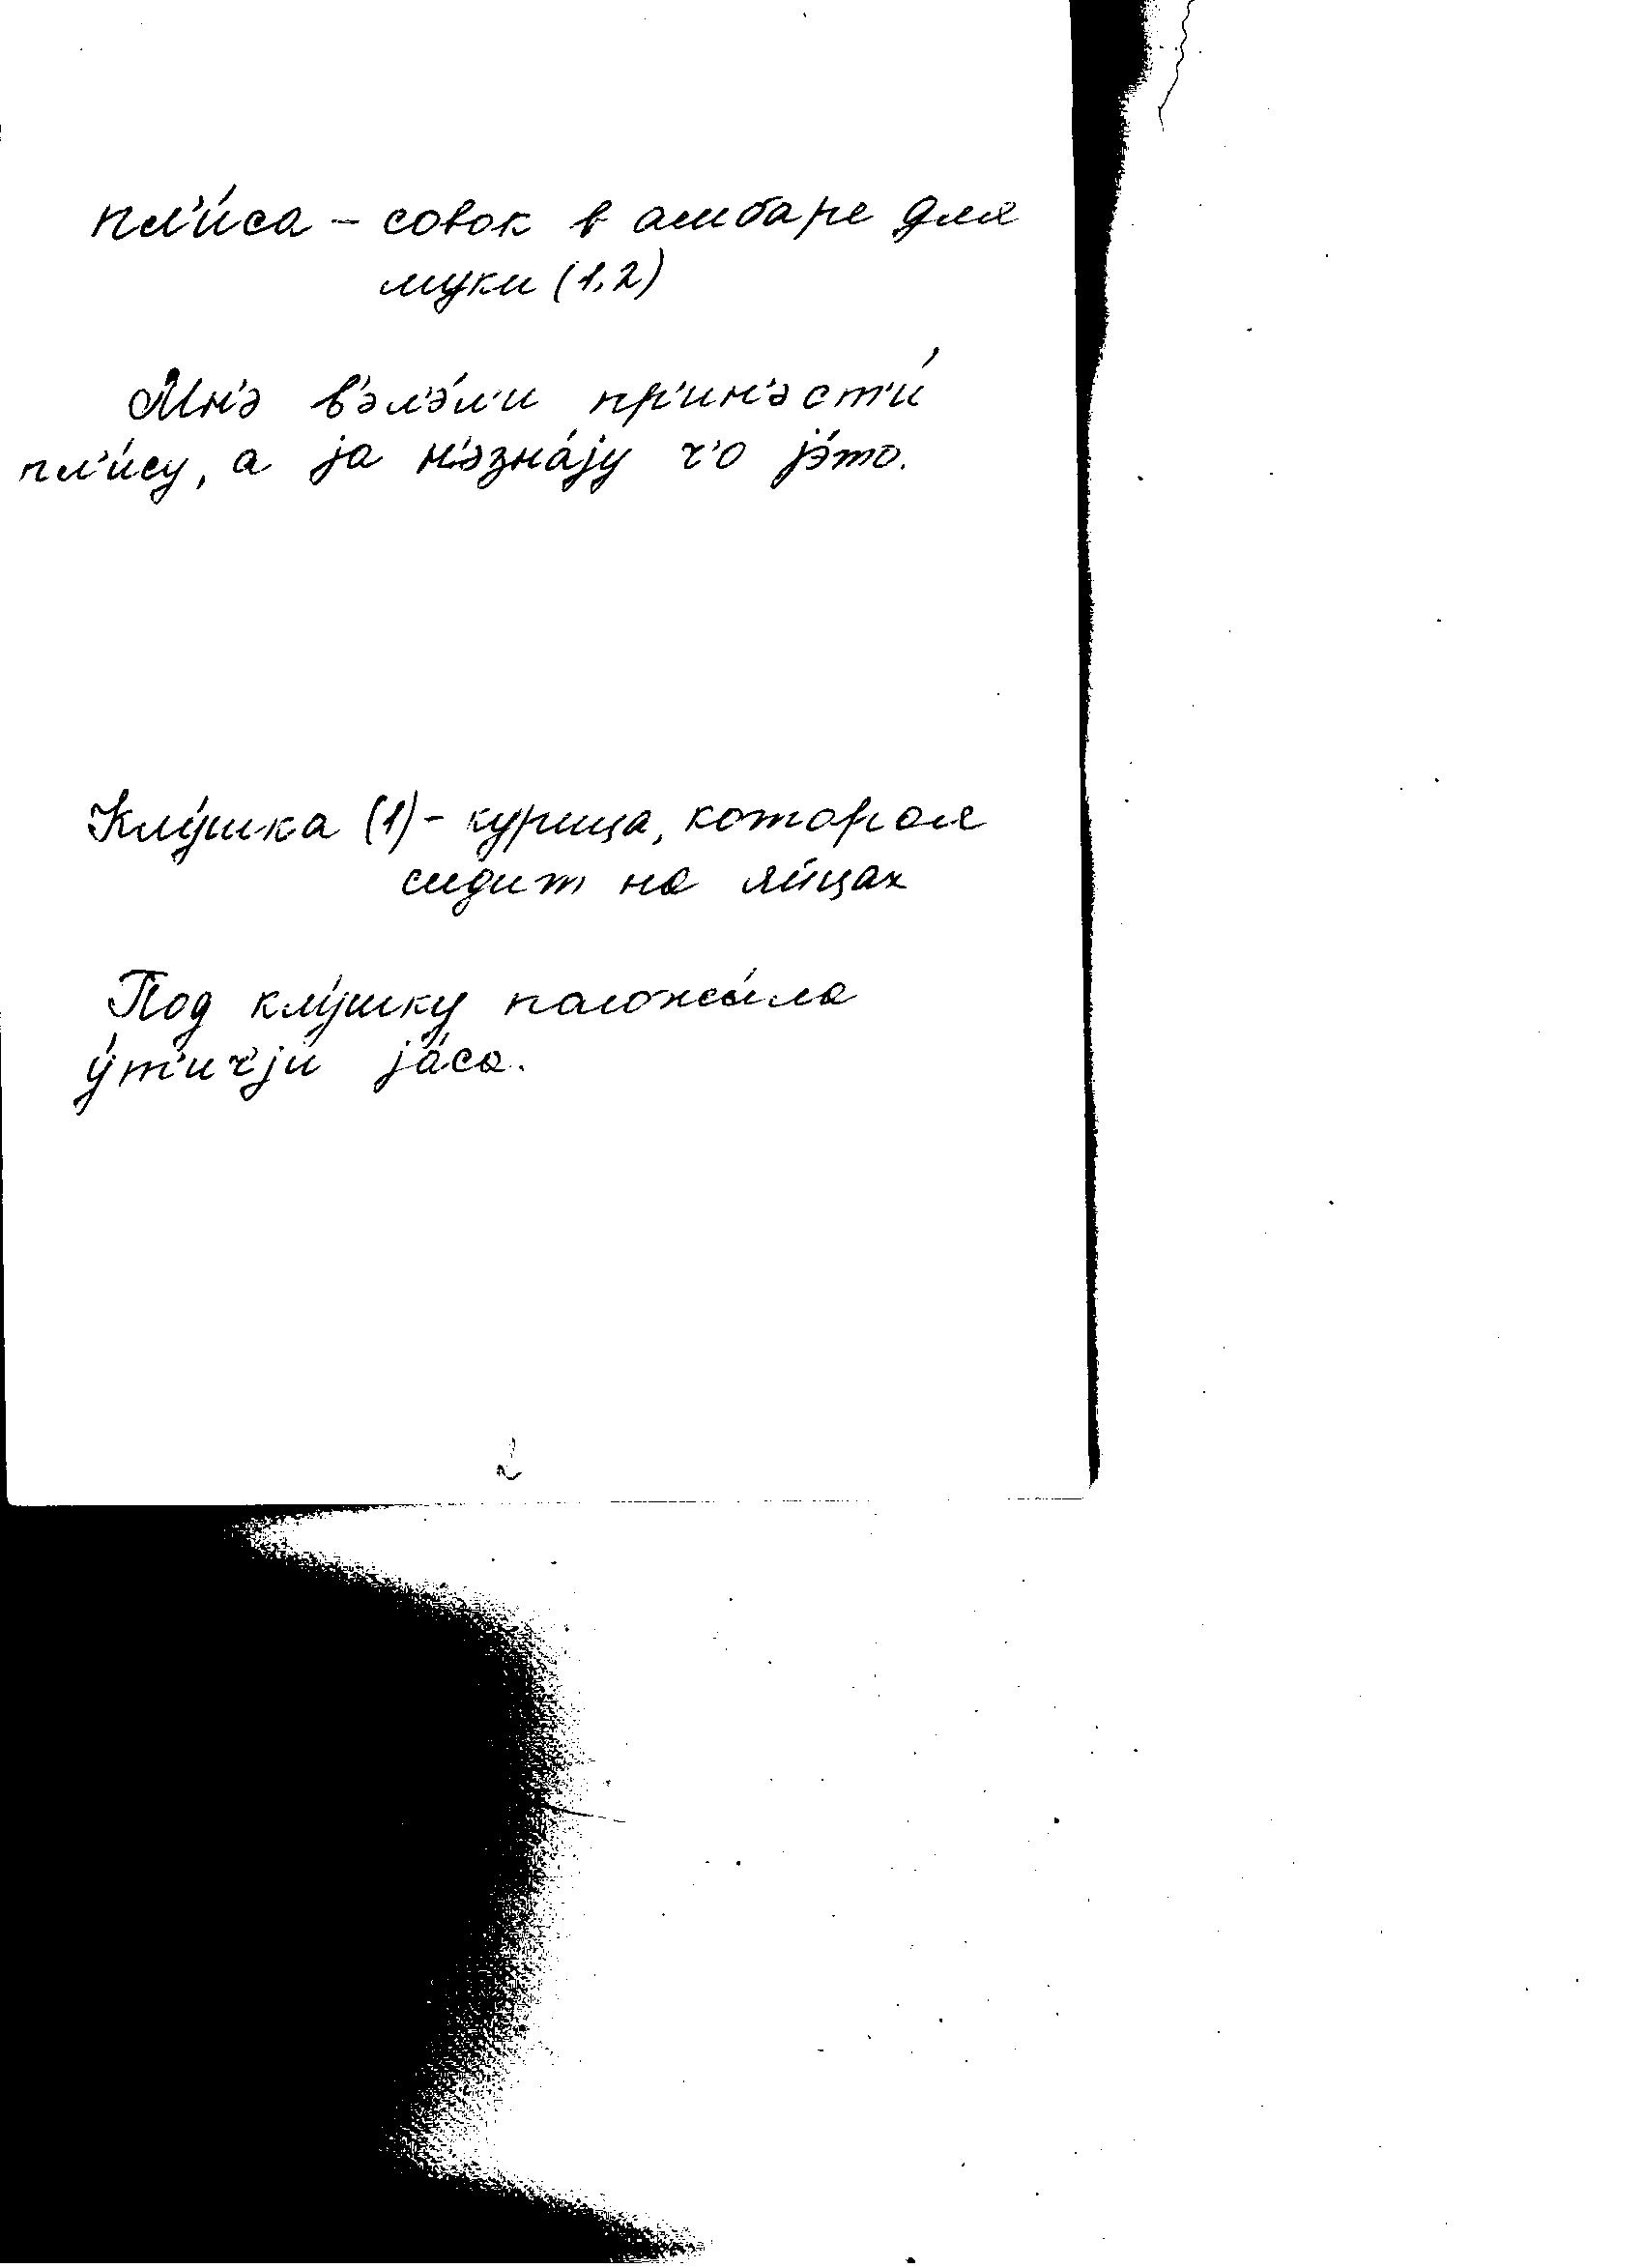 пл'и́са – совок в амбаре для
муки (1,2)
Мн'э в'эл'э́л'и пр'ин'эст'и́
пл'и́су, а jа н'эзна́jу ч'о jэ́то.
Клу́шка (1) – курица, которая
сидит на яйцах
Под клу́шку паложы́ла
у́т'ич'jи jа́са.
2